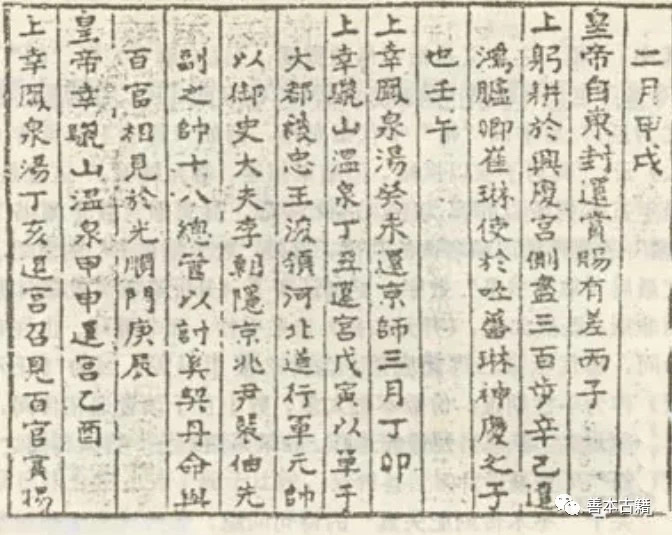 二月甲戌
皇帝自東封還賞賜有差丙子
上躬耕於興慶宮側盡三百步辛已遣
鴻臚卿崔琳使於吐蕃琳神慶之子
也壬午
上幸鳳泉湯癸未還京師三月丁卯
上幸驪山溫泉丁丑還宮戊寅以單于
大都護忠王浚領河北道行軍元帥
以御史大夫李朝隱京兆尹裴伷先
副之帥十八總管以討奚契丹命與
百官相見於光順門庚辰
皇帝幸驪山溫泉甲申還宮乙酉
上幸鳳泉湯丁亥還宮召見百官賞賜
善本古籍